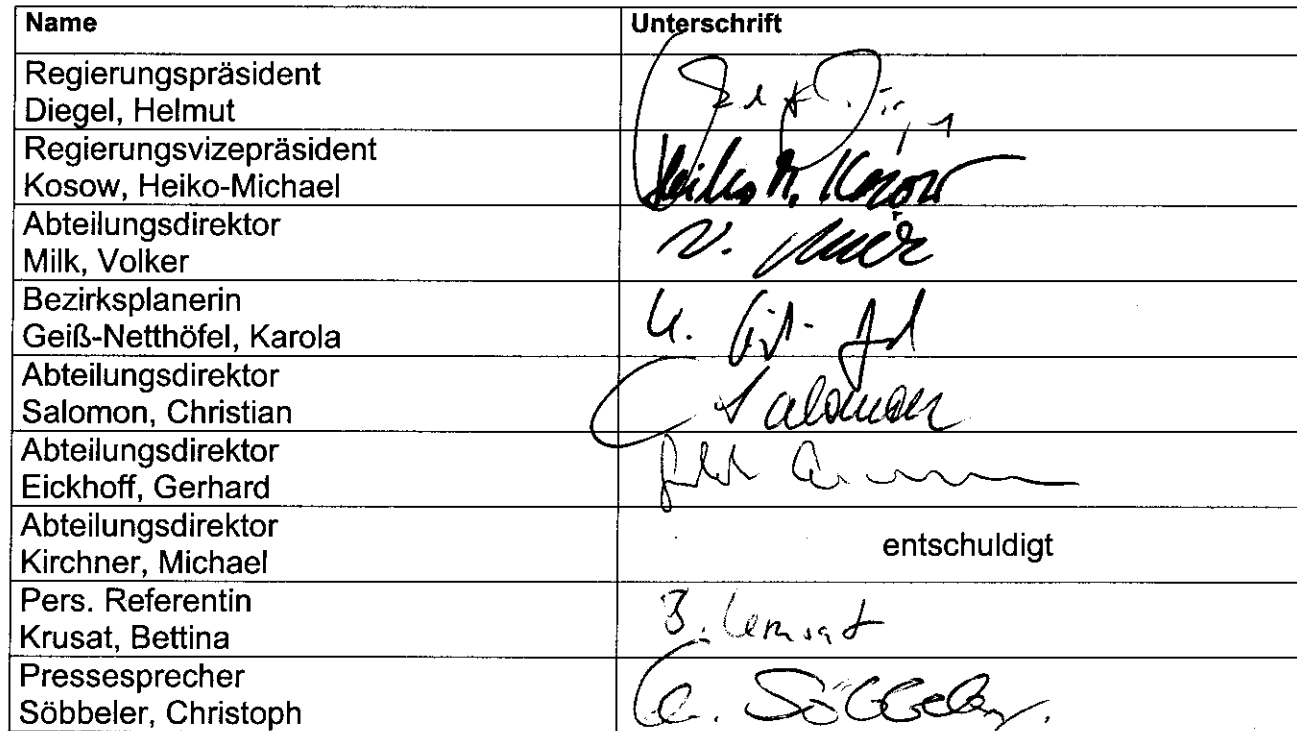 Name Unterschrift
Regierungspräsident
Diegel, Helmut
Regierungsvizepräsident
Kosow, Heiko-Michael Heiko M. Kosow
Abteilungsdirektor
Milk, Volker V. Milk
Bezirksplanerin
Geiß-Netthöfel, Karola
Abteilungsdirektor
Salomon, Christian C Salomon
Abteilungsdirektor
Eickhoff, Gerhard
Abteilungsdirektor
Kirchner, Michael entschuldigt
Pers. Referentin
Krusat, Bettina B. Krusat
Pressesprecher
Söbbeler, Christoph Ch. Söbbeler